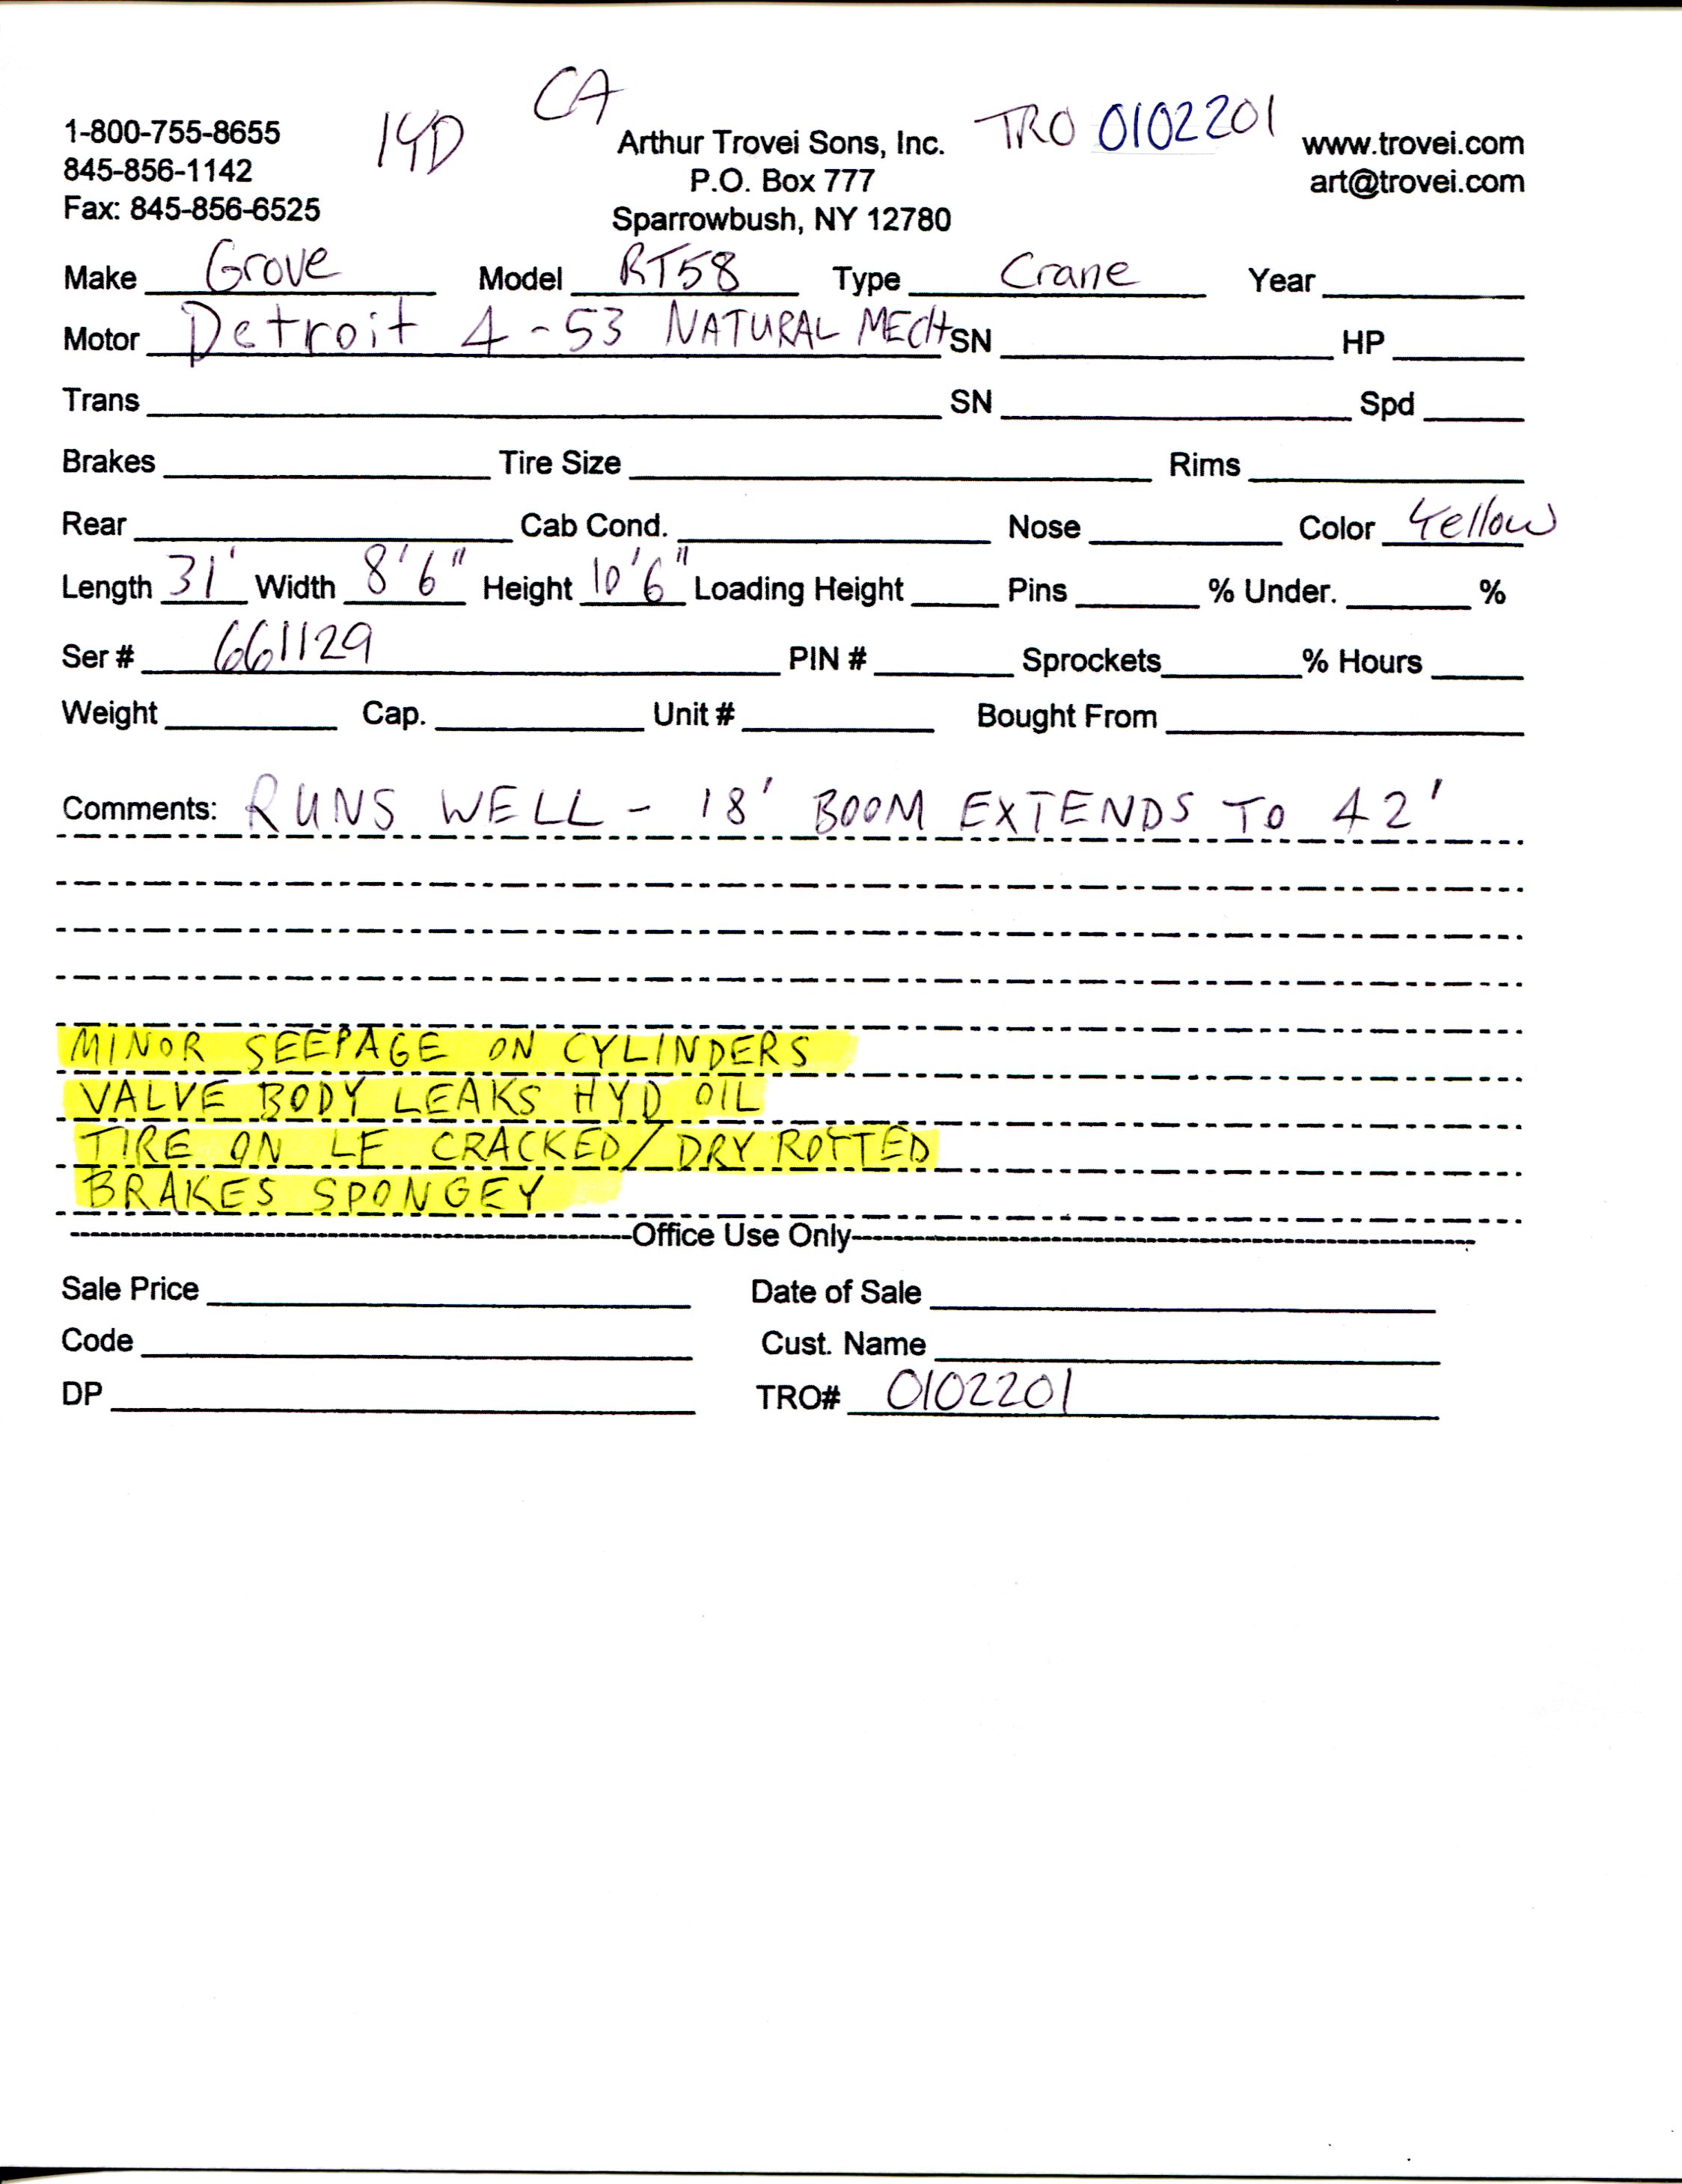 CA
1-800-755-8655 14D Arthur Trovei Sons, Inc. TRO 0102201 www.trovei.com
845-856-1142 P.O. Box 777 art@trovei.com
Fax: 845-856-6525 Sparrowbush, NY 12780
Make Grove Model RT58 Type Crane Year
Motor Detroit 4-53 NATURAL MECH SN HP
Trans SN Spd
Brakes Tire Size Rims
Rear Cab Cond. Nose Color Yellow
Length 31' Width 8'6" Height 10'6" Loading Height Pins % Under. %
Ser # 661129 PIN # Sprockets % Hours
Weight Cap. Unit # Bought From
Comments: RUNS WELL - 18' BOOM EXTENDS TO 42'
MINOR SEEPAGE ON CYLINDERS
VALVE BODY LEAKS HYD OIL
TIRE ON LF CRACKED/DRY ROTTED
BRAKES SPONGEY
Office Use Only
Sale Price Date of Sale
Code Cust. Name
DP TRO# 0102201